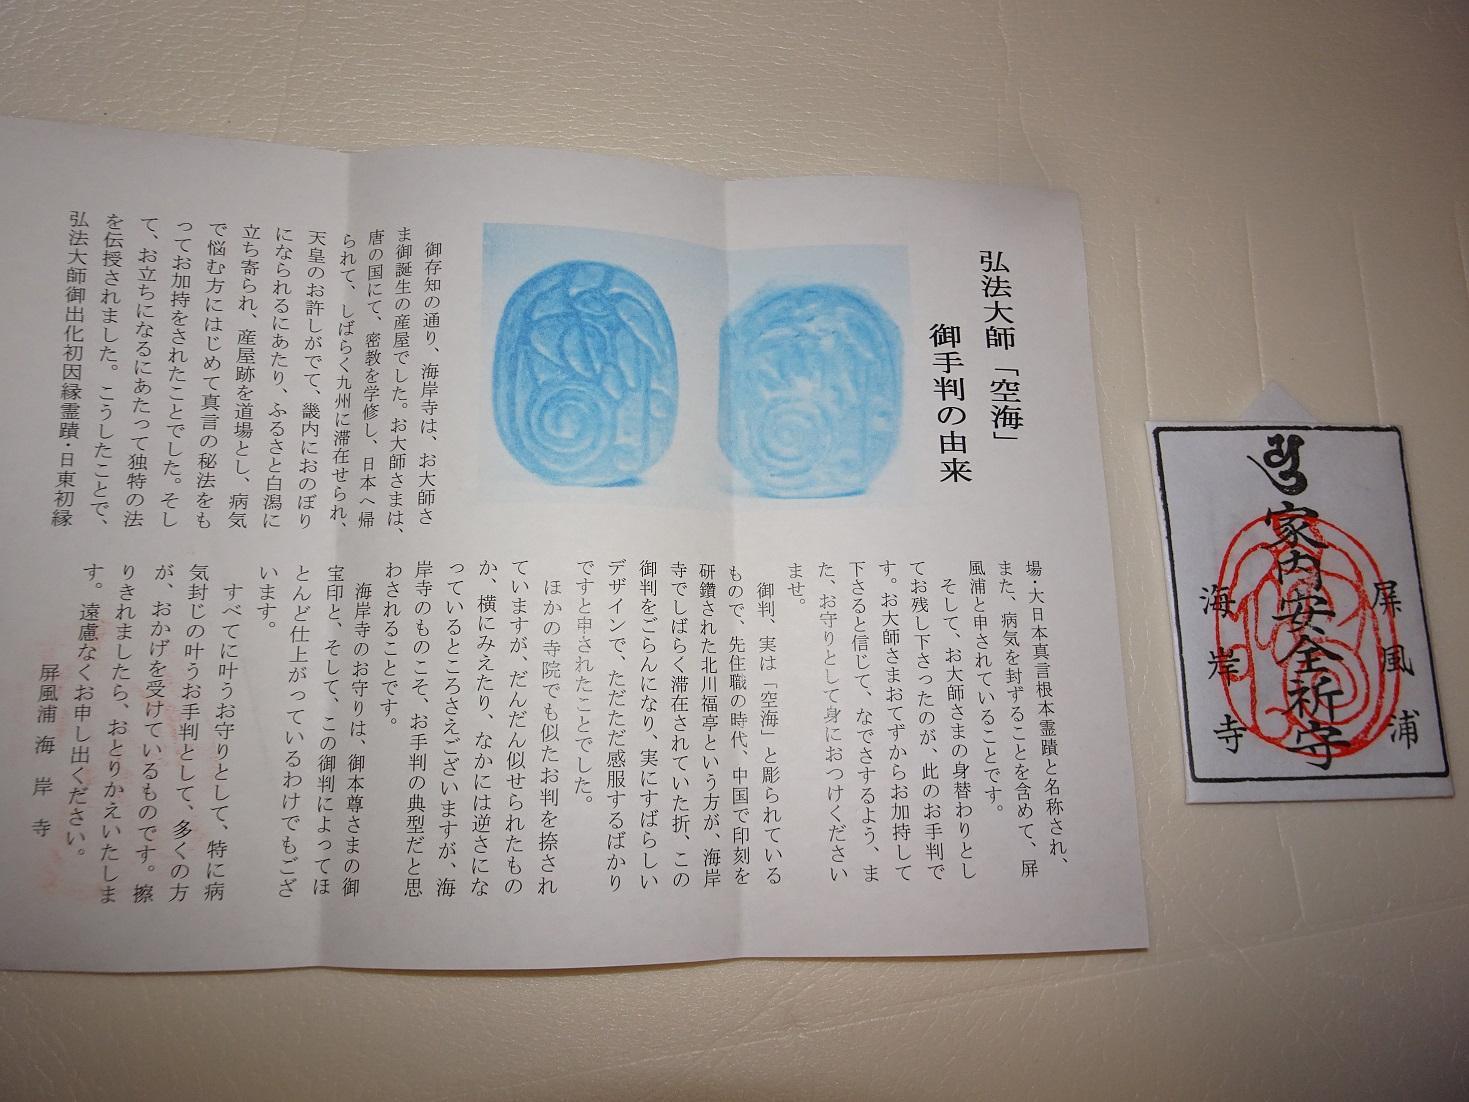 弘法大師「空海」
御手判の由来
御存知の通り、海岸寺は、お大師さ
ま御誕生の産屋でした。お大師さまは、
唐の国にて、密教を学修し、日本へ帰
られて、しばらく九州に滞在せられ、
天皇のお許しがでて、畿内におのぼり
になられるにあたり、ふるさと白潟に
立ち寄られ、産屋跡を道場とし、病気
で悩む方にはじめて真言の秘法をも
ってお加持をされたことでした。そし
て、お立ちになるにあたって独特の法
を伝授されました。こうしたことで、
弘法大師御出化初因縁霊蹟・日東初縁
場・大日本真言根本霊蹟と名称され、
また、病気を封ずることを含めて、屏
風浦と申されていることです。
そして、お大師さまの身替わりとし
てお残し下さったのが、此のお手判で
す。お大師さまおてずからお加持して
下さると信じて、なでさするよう、ま
た、お守りとして身におつけください
ませ。
御判、実は「空海」と彫られている
もので、先住職の時代、中国で印刻を
研鑽された北川福亭という方が、海岸
寺でしばらく滞在されていた折、この
御判をごらんになり、実にすばらしい
デザインで、ただただ感服するばかり
ですと申されたことでした。
ほかの寺院でも似たお判を捺され
ていますが、だんだん似せられたもの
か、横にみえたり、なかには逆さにな
っているところさえございますが、海
岸寺のものこそ、お手判の典型だと思
わされることです。
海岸寺のお守りは、御本尊さまの御
宝印と、そして、この御判によってほ
とんど仕上がっているわけでもござ
います。
すべてに叶うお守りとして、特に病
気封じの叶うお手判として、多くの方
が、おかげを受けているものです。擦
りきれましたら、おとりかえいたしま
す。遠慮なくお申し出ください。
屏風浦 海岸寺
屏風浦
家内安全祈守
海岸寺